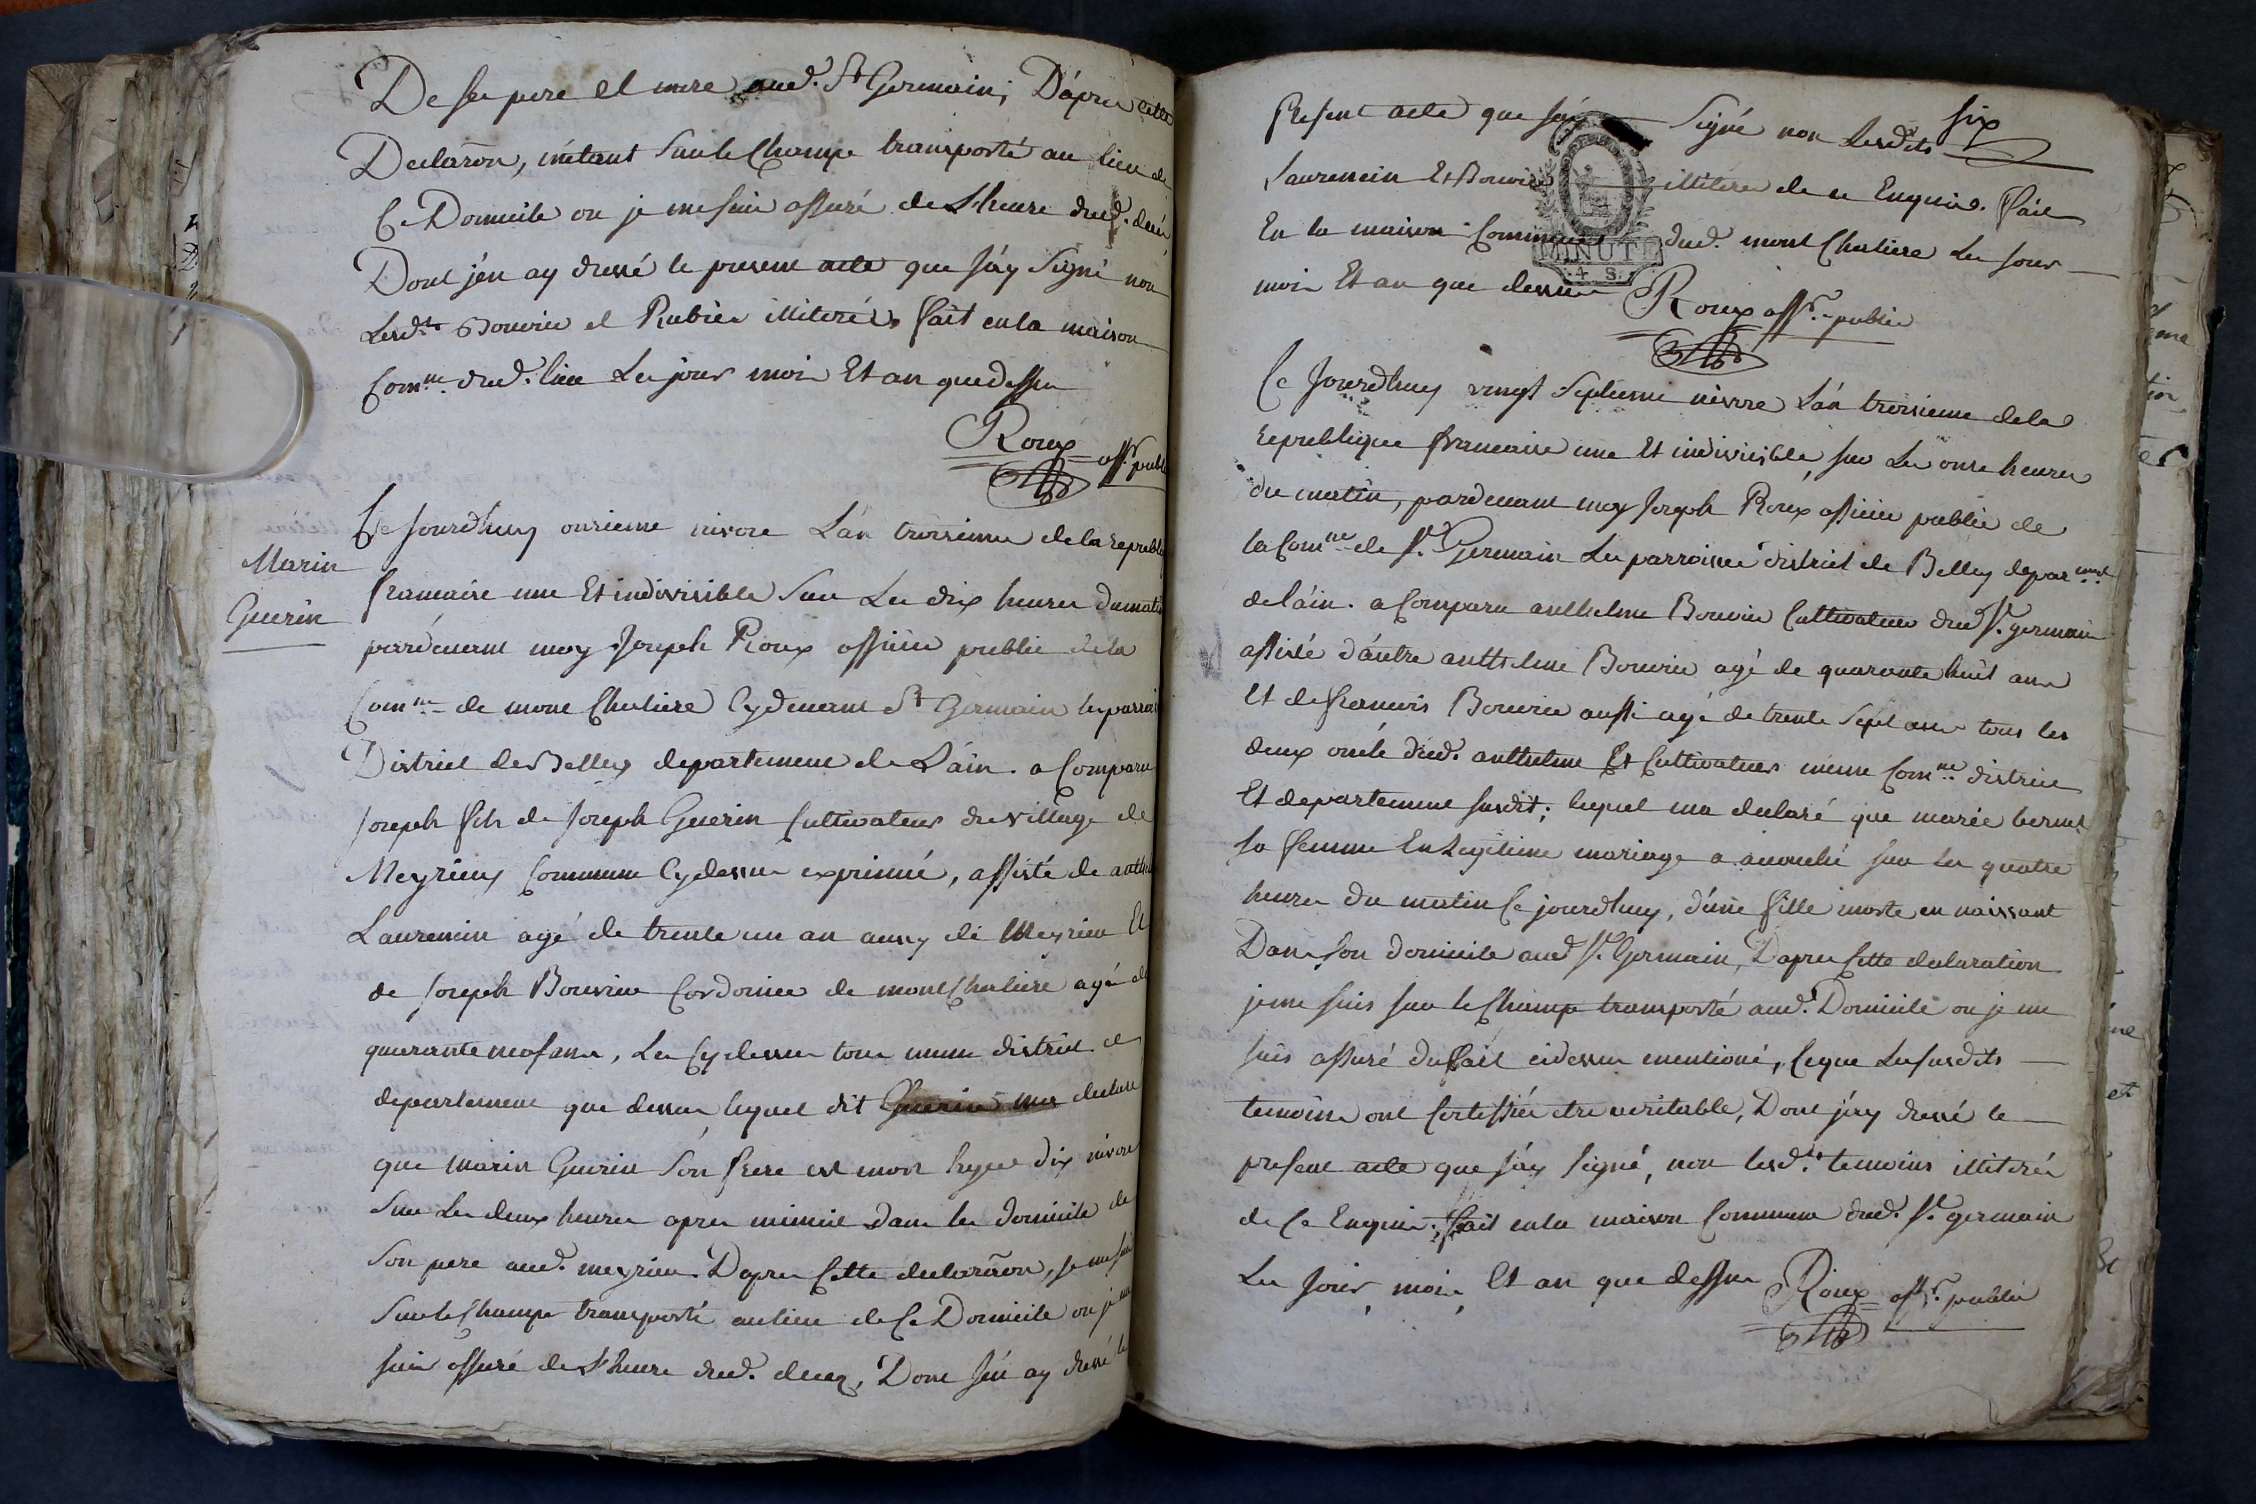 De ses pere et mere aud. St Germain; D'apres cette
Declaraõn, m'étant sur le Champ transporté au lieu de
Ce Domicile ou je me suis assuré de L'heure dud. deces
Dont j'en ay dressé le present acte que j'ay signé non
Lesd.ts Bouvier et Rubier illiterés, fait en la maison
Com.ne dud. lieu Les jour mois Et an que dessus
Roux off.r public
Marin
Guerin
Ce Jourd'huy onzieme nivose L'an troisieme de la republiq
francaise une Et indivisible Sur Les dix heures du matin
pardevant moy Joseph Roux officier public de la
Com.ne de mont Chaliere Cydevant St Germain les parroi
District de Belley departement de L'ain. a Comparu
Joseph fils de Joseph Guerin Cultivateur du village de
Meyrieux Commune Cydessus exprimé, assisté de anthe
Laurencin agé de trente un an aussy de Meyrieu Et
de Joseph Bouvier Cordonier de mont Chaliere agé de
quarante neuf ans, Les Cydessus tous meme district et
departement que dessus lequel dit Guerin m'a declaré
que marin Guerin Son frere est mort hyer dix nivose
Sur Les deux heures apres minuit Dans le domicile de
Son pere aud. meyrieu. D'apres Cette declaraõn, je me suis
Sur le Champ transporté au lieu de Ce Domicile ou je me
suis assuré de L'heure dud. deces, Dont j'en ay dressé le
six
Present acte que j'ay Signé non Lesdits
Laurencin Et Bouvier illiterés de ce Enquis. Fait
En la maison Commune dud. mont Chaliere Les jour
MINUTE
4 S.
mois Et an que dessus Roux off.r public
Ce Jourd'huy vingt Septieme nivose L'an troisieme de la
republique francaise une Et indivisible, sur Les onze heures
du matin, pardevant moy Joseph Roux officier public de
la Com.ne de St. Germain Les parroisses district de Belley depar.ment
de l'ain. a Comparu anthelme Bouvier Cultivateur dud St. germain
assisté d'autre anthelme Bouvier agé de quarante huit ans
Et de francois Bouvier aussi agé de trente Sept ans tous les
deux oncle dud. anthelme Et Cultivateurs meme Com.ne district
Et departement susdit; lequel m'a declaré que marie bernet
sa femme En Legitime mariage a accouché sur les quatre
heures du matin Ce jourd'huy, d'une fille morte en naissant
Dans son domicile aud St. Germain, D'apres Cette declaration
je me suis sur le Champ transporté aud. Domicile ou je me
suis assuré du fait cidessus mentioné, Ce que Les susdits
temoins ont Certiffiés etre veritable, Dont j'ay dressé le
present acte que j'ay signé, non lesd.ts temoins illiterés
de Ce Enquis, fait en la maison Commune dud. St. germain
Les jour, mois, Et an que dessus Roux off.r public